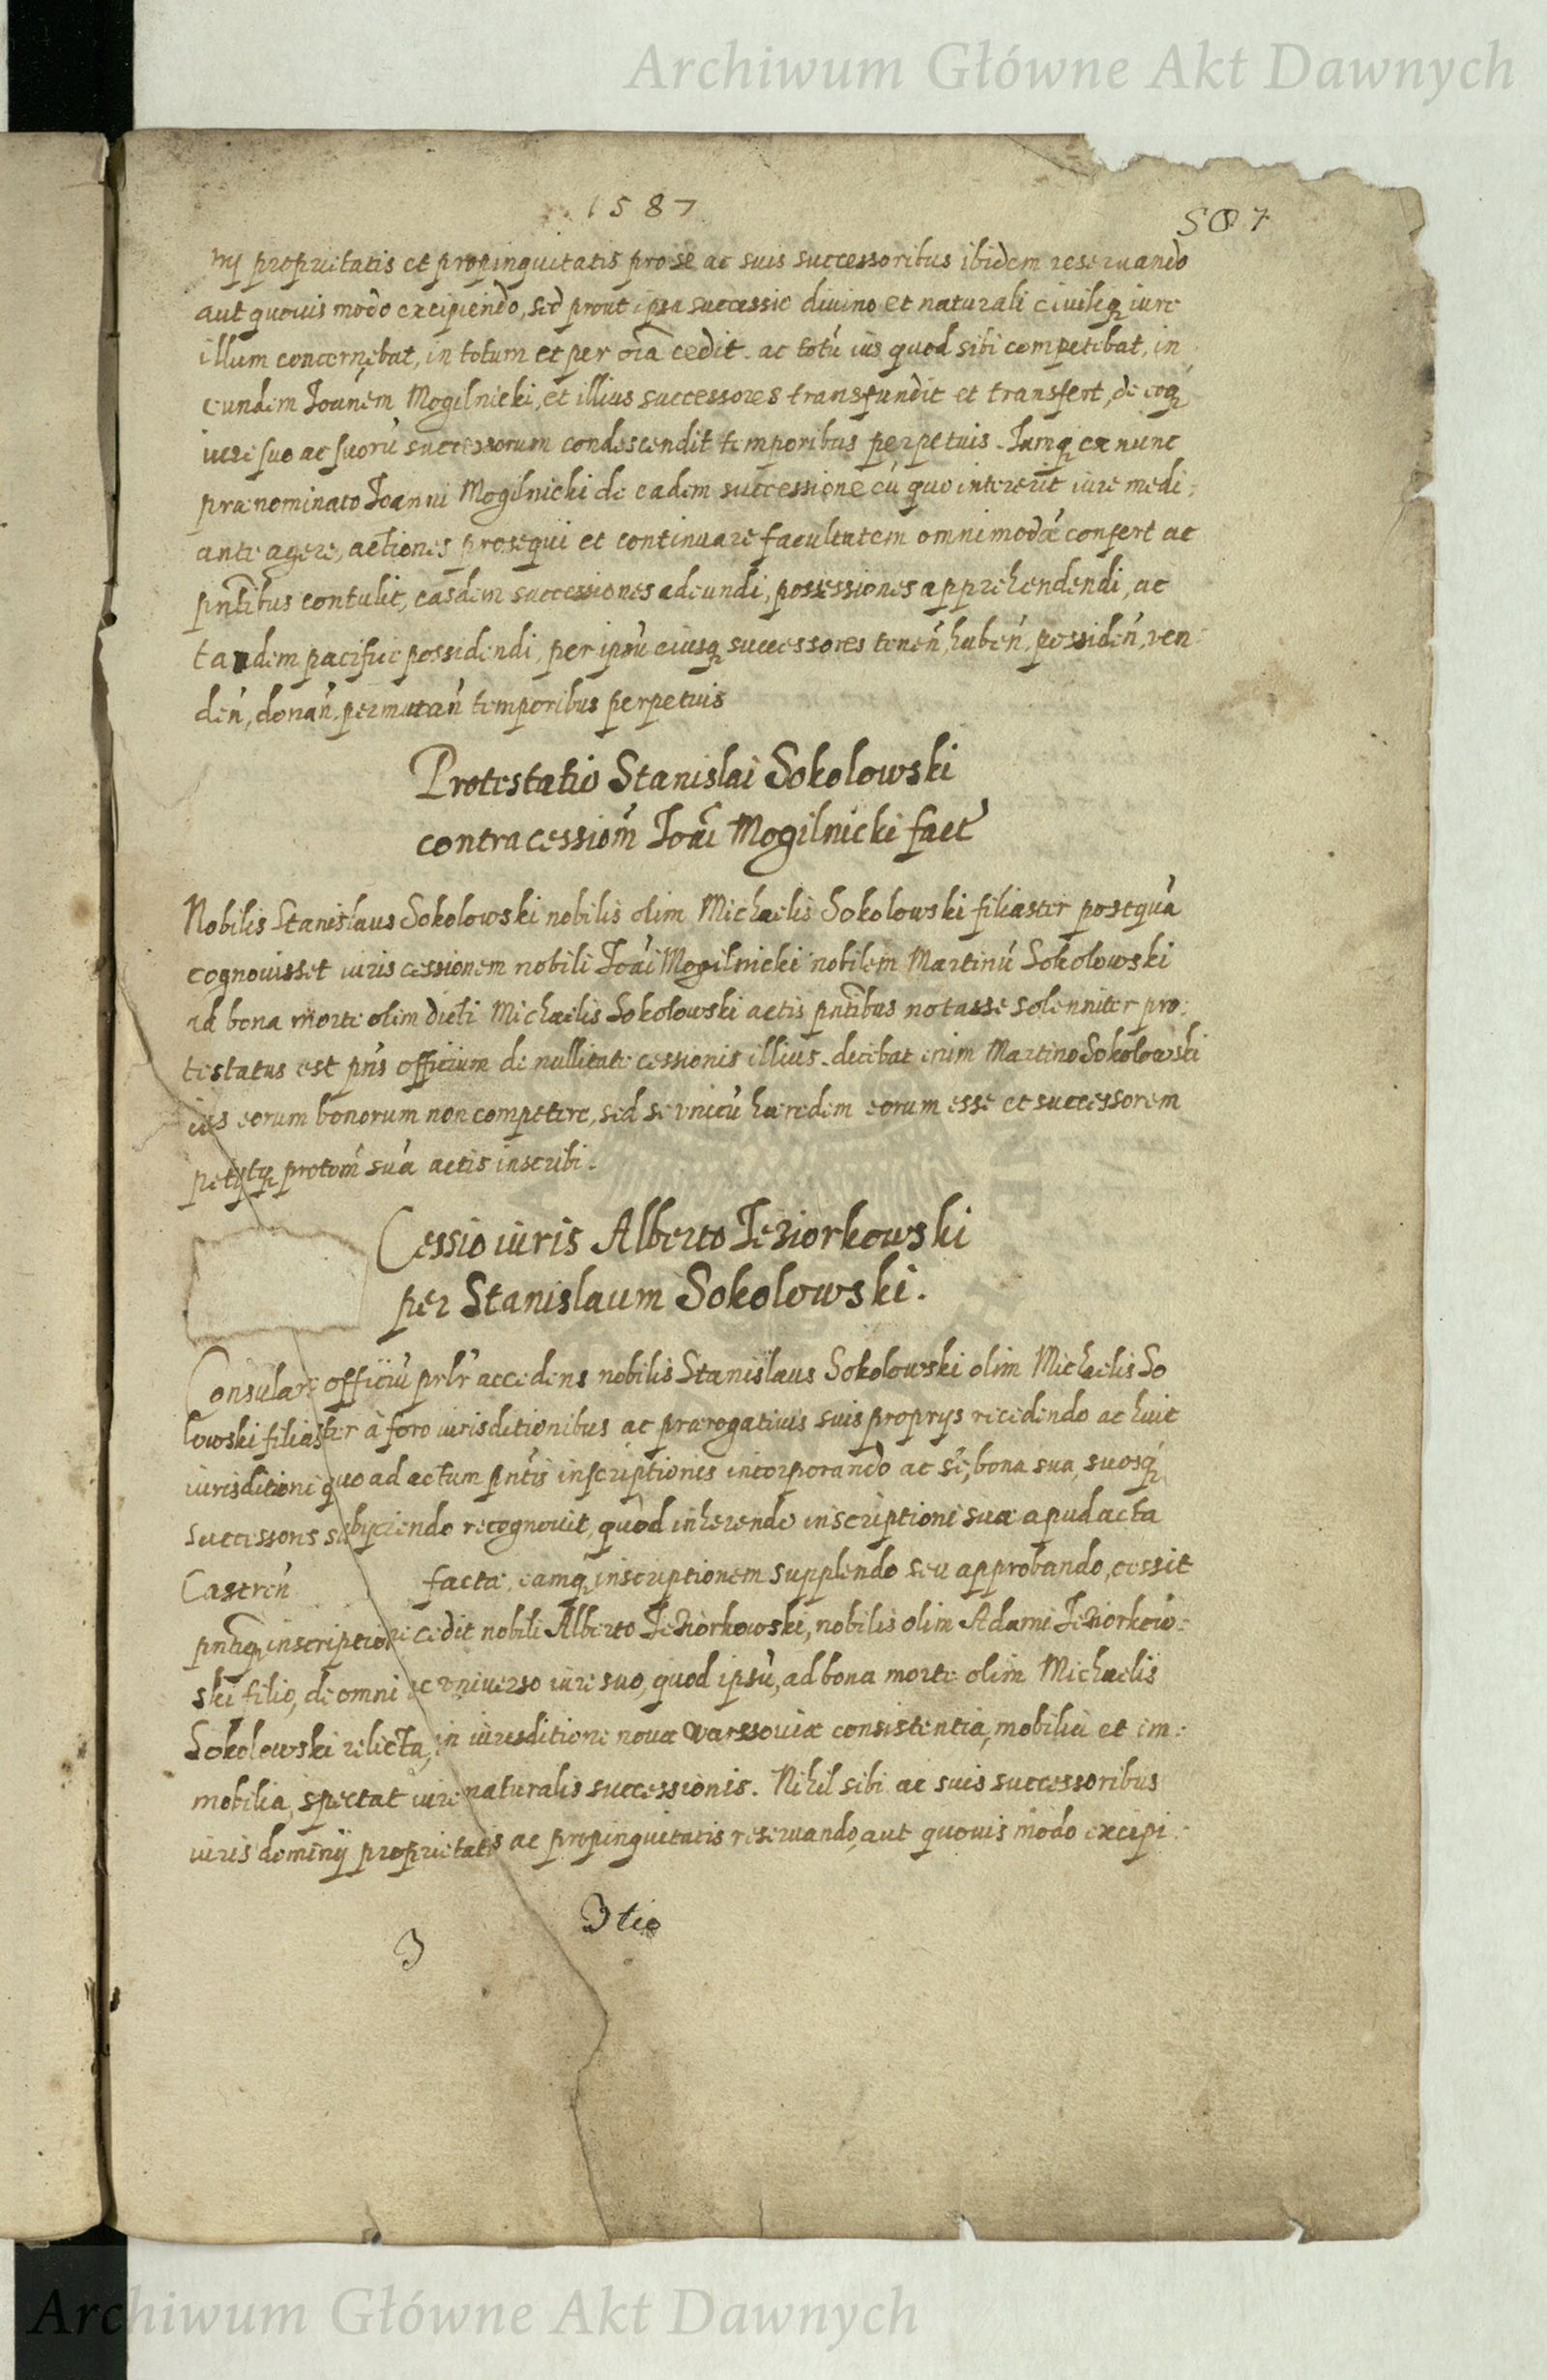 Archiwum Główne Akt Dawnych
1587
507
nij proprietatis et propinquitatis pro se ac suis successoribus ibidem reseruando
aut quouis modo excipiendo, sed prout ipsa successio diuino et naturali ciuiliq iure
illum concernebat, in totum et per oia cedit. ac totu ius quod sibi competebat, in
eundem Joanem Mogilnicki, et illius successores transfundit et transfert, de eoq
iure suo ac suoru successorum condescendit temporibus perpetuis. Jamq ex nunc
prænominato Joanni Mogilnicki de eadem successione cu quo intererit iure medi:
ante agere, actiones prosequi et continuare facultatem omnimoda confert ac
pntibus contulit, easdem successiones adeundi, possessiones apprehendendi, ac
tandem pacifice possidendi, per ipsu eiusq successores tenen, haben, possiden, ven:
den, donan, permutan temporibus perpetuis
Protestatio Stanislai Sokolowski
contra cessiom Joai Mogilnicki fact
Nobilis Stanislaus Sokolowski nobilis olim Michaelis Sokolowski filiaster postqua
cognouisset iuris cessionem nobili Joai Mogilnicki nobilem Martinu Sokolowski
ad bona morte olim dicti Michaelis Sokolowski actis pntibus notasse solenniter pro:
testatus est pns officium de nullitate cessionis illius. dicebat enim Martino Sokolowski
ius eorum bonorum non competere, sed se vnicu hæredem eorum esse et successorem
petijtq protom sua actis inscribi.
Cessio iuris Alberto Jeziorkowski
per Stanislaum Sokolowski.
Consulare officiu prlr accedens nobilis Stanislaus Sokolowski olim Michaelis So
lowski filiaster à foro iurisditionibus ac prærogatiuis suis proprijs recedendo ac huic
iurisditioni quo ad actum pntis inscriptionis incorporando ac se, bona sua, suosq
successores subijciendo recognouit, quod inherendo inscriptioni suæ apud acta
Castren factæ, eamq inscriptionem supplendo seu approbando, cessit
pntiq inscriptione cedit nobili Alberto Jeziorkowski, nobilis olim Adami Jeziorkow:
ski filio, de omni ac vniuerso iure suo, quod ipsu, ad bona morte olim Michaelis
Sokolowski relicta, in iurisditione nouæ Warssouiæ consistentia, mobilia et im:
mobilia, spectat iure naturalis successionis. Nihil sibi ac suis successoribus
iuris dominij proprietatis ac propinquitatis reseruando, aut quouis modo excipi:
3 tio
3
Archiwum Główne Akt Dawnych